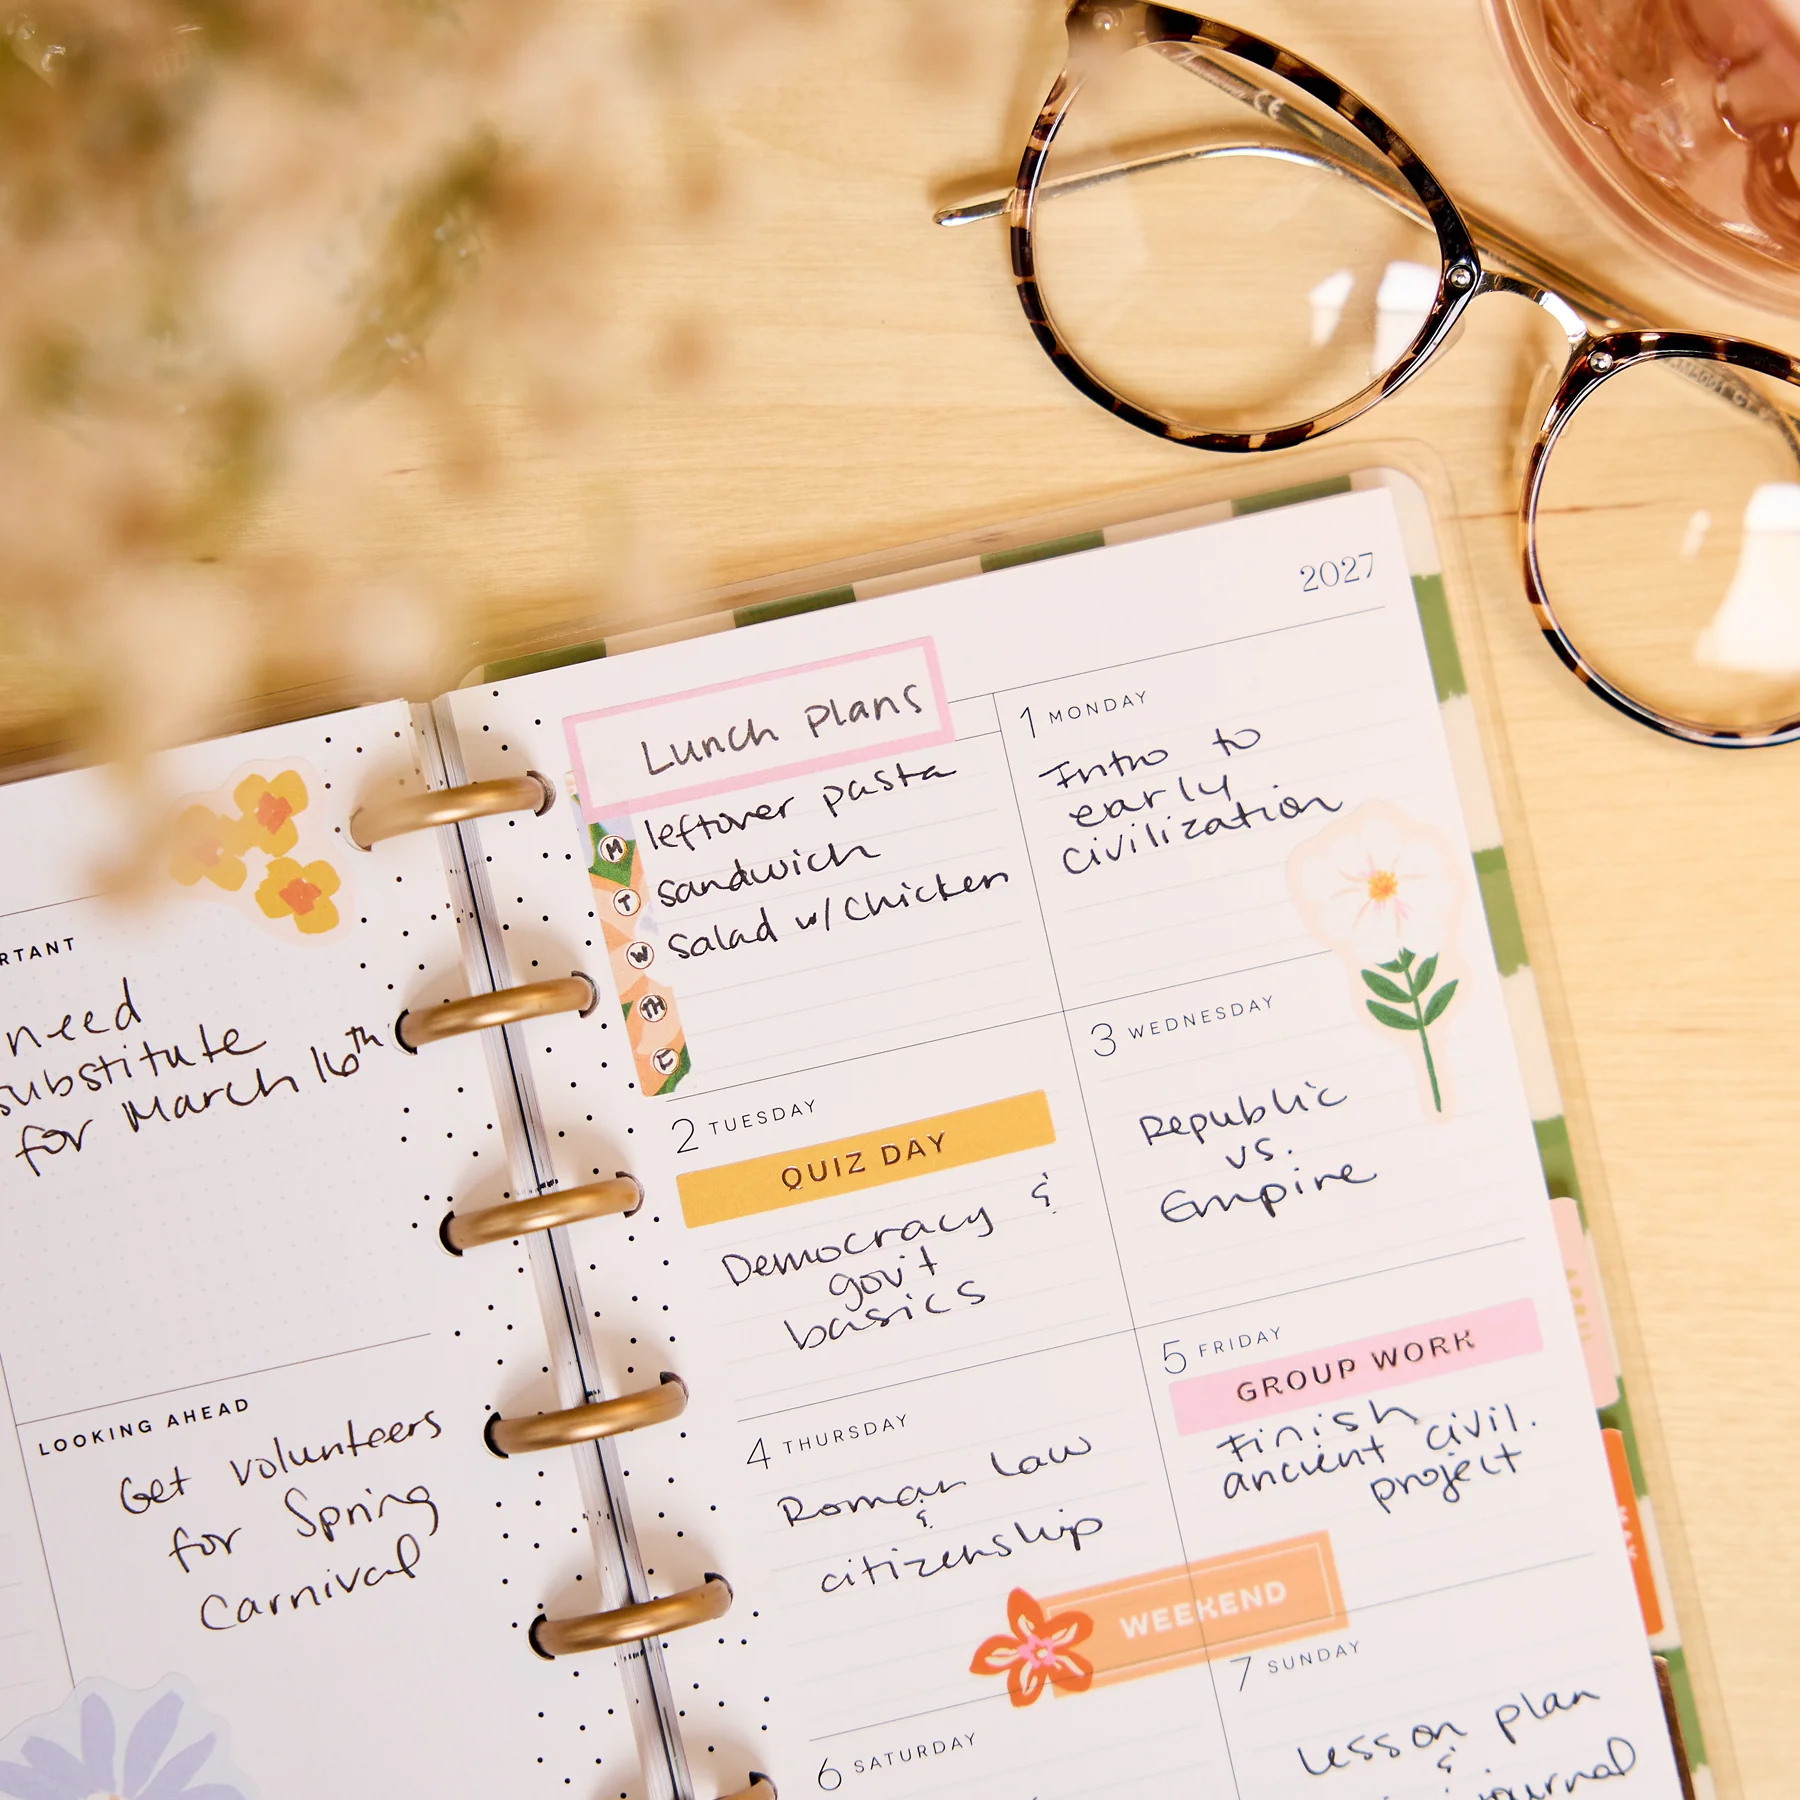 need
substitute
for March 16th
LOOKING AHEAD
Get volunteers
for Spring
Carnival
2027
Lunch Plans
M leftover pasta
T sandwich
W salad w/ chicken
TH
F
1 MONDAY
Intro to
early
civilization
2 TUESDAY
QUIZ DAY
Democracy &
gov't
basics
3 WEDNESDAY
Republic
vs.
Empire
4 THURSDAY
Roman Law
&
citizenship
5 FRIDAY
GROUP WORK
Finish
ancient civil.
project
WEEKEND
6 SATURDAY
7 SUNDAY
lesson plan
&
journal
MAY